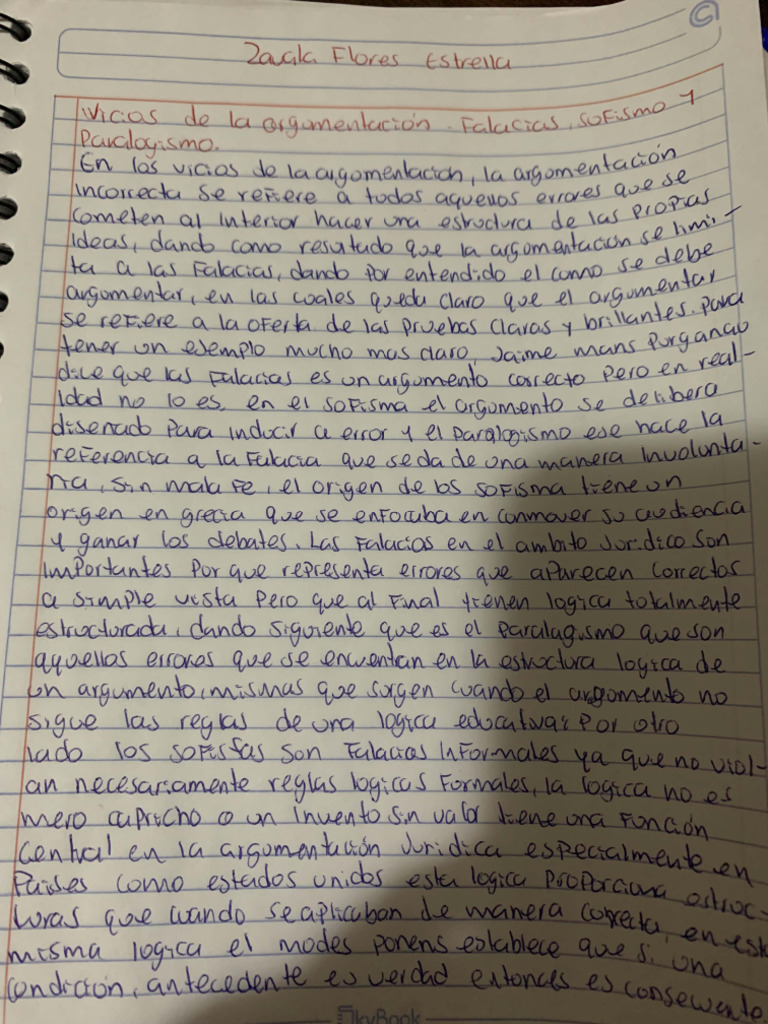 C
Zavala Flores Estrella
Vicios de la argumentación. Falacias, sofismo y
Paralogismo.
En los vicios de la argumentación, la argumentación
incorrecta se refiere a todos aquellos errores que se
cometen al interior hacer una estructura de las propias
ideas, dando como resultado que la argumentacion se limi-
ta a las falacias, dando por entendido el como se debe
argumentar, en las cuales queda claro que el argumentar
se refiere a la oferta de las pruebas claras y brillantes. para
tener un ejemplo mucho mas claro, Jaime mans Purganao
dice que las falacias es un argumento correcto pero en real-
idad no lo es, en el sofisma el argumento se delibera
diseñado para inducir a error y el paralogismo ese hace la
referencia a la falacia que se da de una manera involunta-
ria, sin mala fe, el origen de los sofisma tiene un
origen en grecia que se enfocaba en conmover su audiencia
y ganar los debates. Las falacias en el ambito Juridico son
importantes por que representa errores que aparecen correctos
a simple vista pero que al final tienen logica totalmente
estructurada, dando siguiente que es el paralagismo que son
aquellos errores que se encuentan en la estructura logica de
un argumento, mismas que surgen cuando el argumento no
sigue las reglas de una logica educativa: Por otro
lado los sofistas son falacias informales ya que no viol-
an necesariamente reglas logicas formales, la logica no es
mero capricho o un invento sin valor tiene una función
central en la argumentación Juridica especialmente en
Paises como estados unidos esta logica proporciona estruc-
turas que cuando se aplicaban de manera correcta, en esta
misma logica el modes ponens establece que si una
condición, antecedente es verdad entonces es consecuente
SkyBook